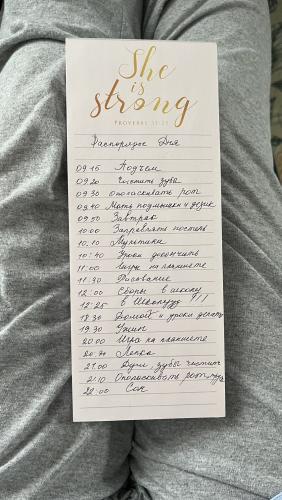 She
is
strong
PROVERBS 31:25
Распорядок Дня
09:15 Подъем
09:20 Чистить зубы
09:30 Ополаскивать рот
09:40 Мыть подмышки и
09:50 Завтрак
10:00 Заправлять постель
10:10 Мультики
10:40 Уроки доделать
11:00 Игры на планшете
11:30 Рисование
12:00 Сборы в школу
12:25 в Школу !!!
18:30 Домой и уроки делать
19:30 Ужин
20:00 Игра на планшете
20:30 Лепка
21:00 Душ, зубы чистить
21:10 Ополаскивать рот
22:00 Сон